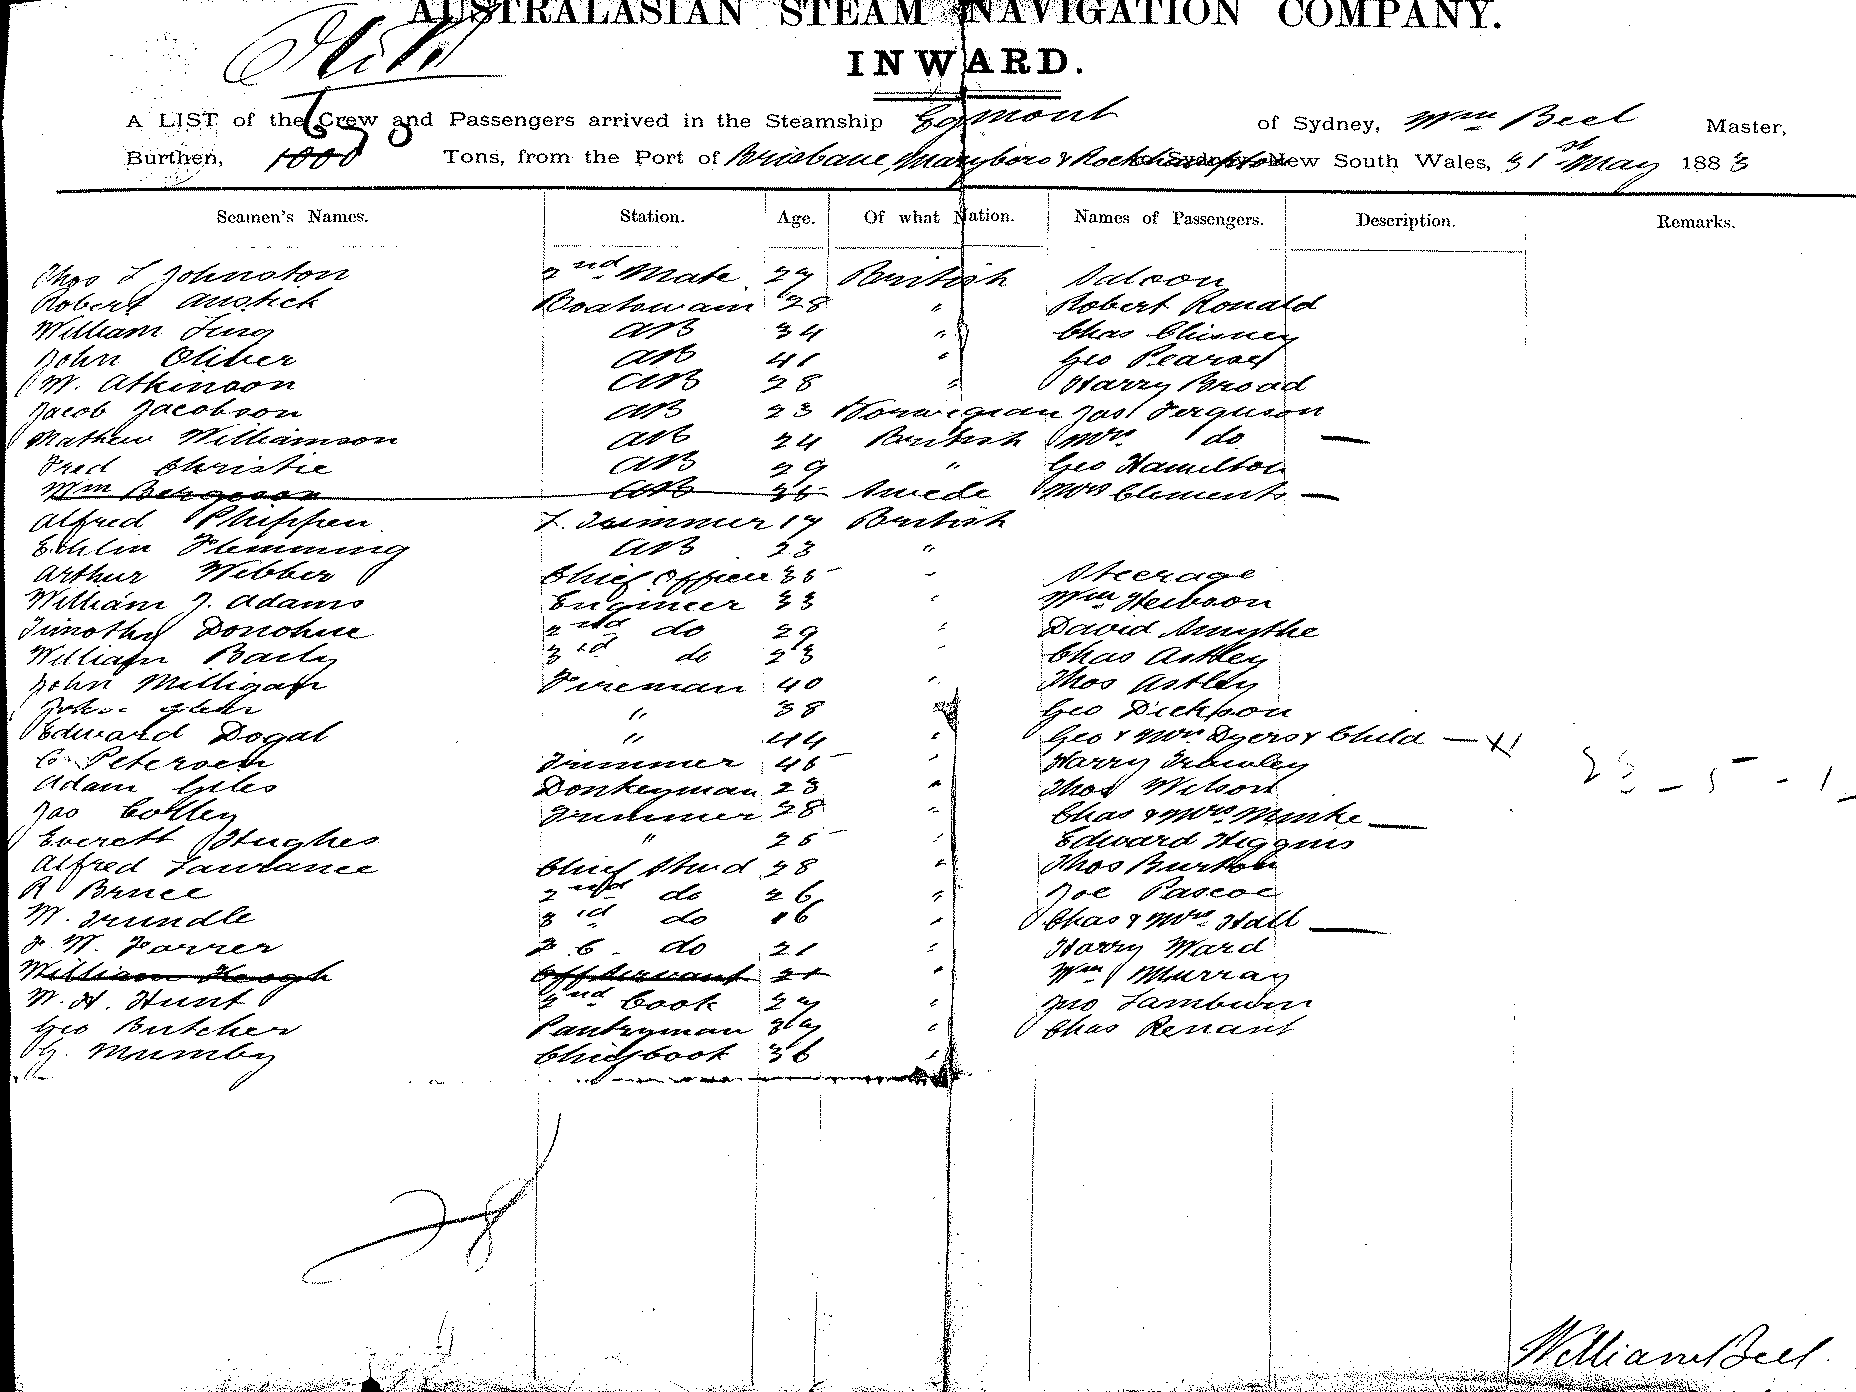 AUSTRALASIAN STEAM NAVIGATION COMPANY.
INWARD.
A LIST of the Crew and Passengers arrived in the Steamship Egmont of Sydney, Wm Beel Master,
Burthen, Tons, from the Port of Brisbane, Maryboro & Rockhampton to Sydney, New South Wales, 31st May 1883
Seamen's Names. Station. Age. Of what Nation. Names of Passengers. Description. Remarks.
Thos L Johnston 2nd Mate 27 British Saloon
Robert Anstich Boatswain 28 " Robert Ronald
William AB 34 " Chas Chisney
John Oliver AB 41 " Geo Pearse
W. Atkinson AB 28 " Harry Broad
Jacob Jacobson AB 23 Norwegian Jas Ferguson
Mathew Williamson AB 24 British Mrs do —
Fred Christie AB 29 " Geo Hamilton
Wm Bergeson AB 35 Swede Mrs Clements —
Alfred Phippen Trimmer 17 British
Echlin Flemming AB 23 "
Arthur Webber Chief Officer 35 " Steerage
William J. Adams Engineer 33 " Wm
Timothy Donohue 2nd do 29 " David Smythe
William Baily 3rd do 23 " Chas Astley
John Milligan Fireman 40 " Thos Astley
John " 38 " Geo Dickson
Edward Dogal " 44 " Geo & Mrs Dyers & Child — X
C. Petersen Trimmer 45 " Harry Trowley
Adam Giles Donkeyman 23 " Thos Wilson
Jas Colley Trimmer 28 " Chas & Mrs Minke —
Everett Hughes " 25 " Edward Higgins
Alfred Lawrance Chief Stwd 28 " Thos Burton
R Bruce 2nd do 26 " Joe Pascoe
W. Trundle 3rd do 16 " Chas & Mrs Hall —
F. W. Farrer F. C. do 21 " Harry Ward
William Keogh Off Servant 21 " Wm Murray
W. H. Hunt 2nd Cook 27 " Jno Lamburn
Geo Butcher Pantryman 37 " Chas Renant
G. Mumby Chief Cook 36 "
William Beel